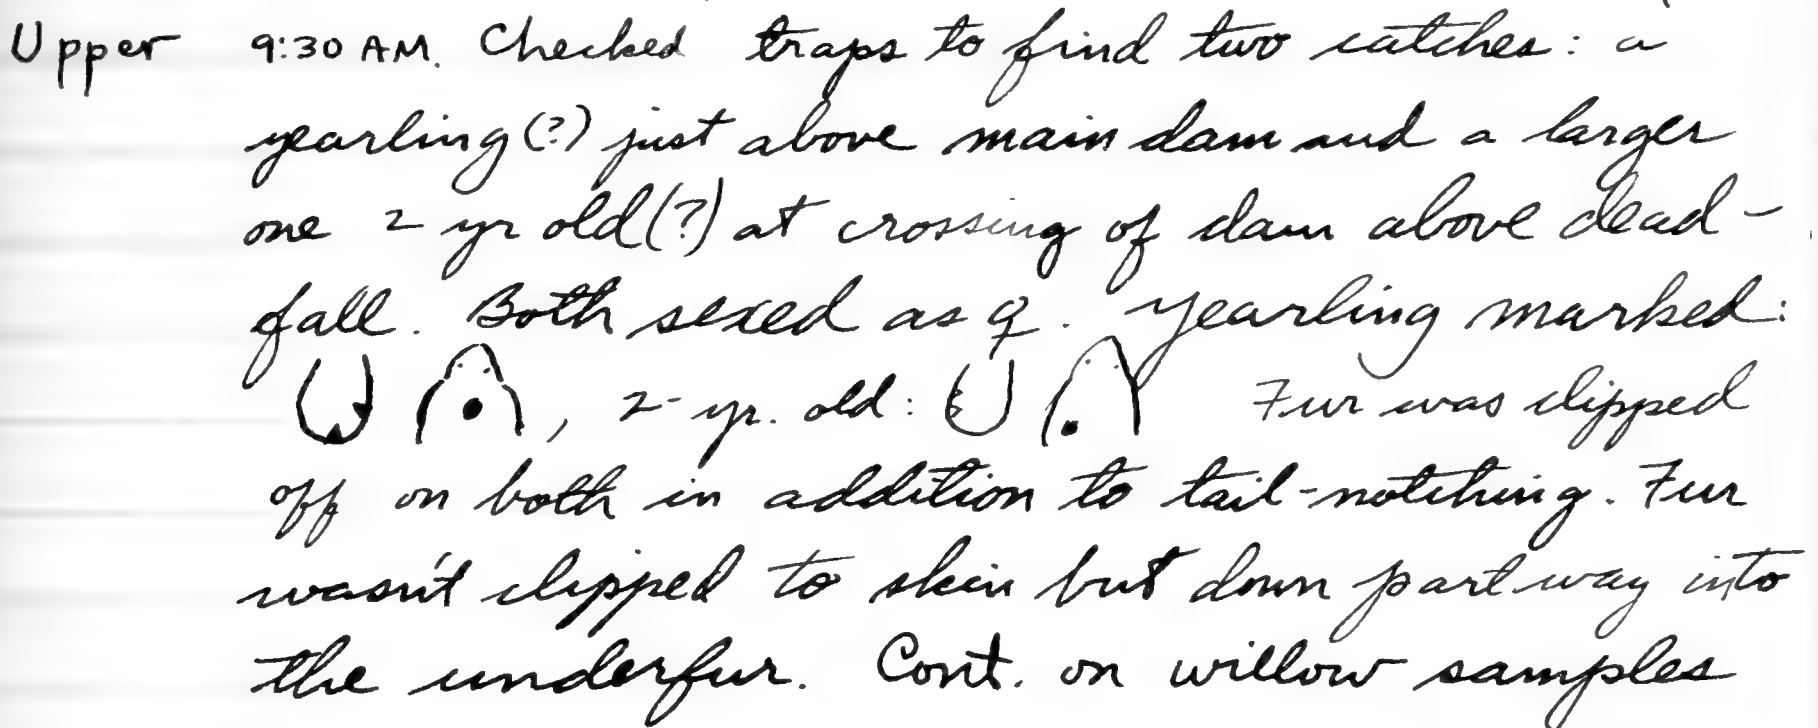 Upper 9:30 AM. Checked traps to find two catches: a
yearling(?) just above main dam and a larger
one 2 yr old(?) at crossing of dam above dead-
fall. Both sexed as ♀. Yearling marked:
, 2-yr. old: Fur was clipped
off on both in addition to tail-notching. Fur
wasn't clipped to skin but down part way into
the underfur. Cont. on willow samples